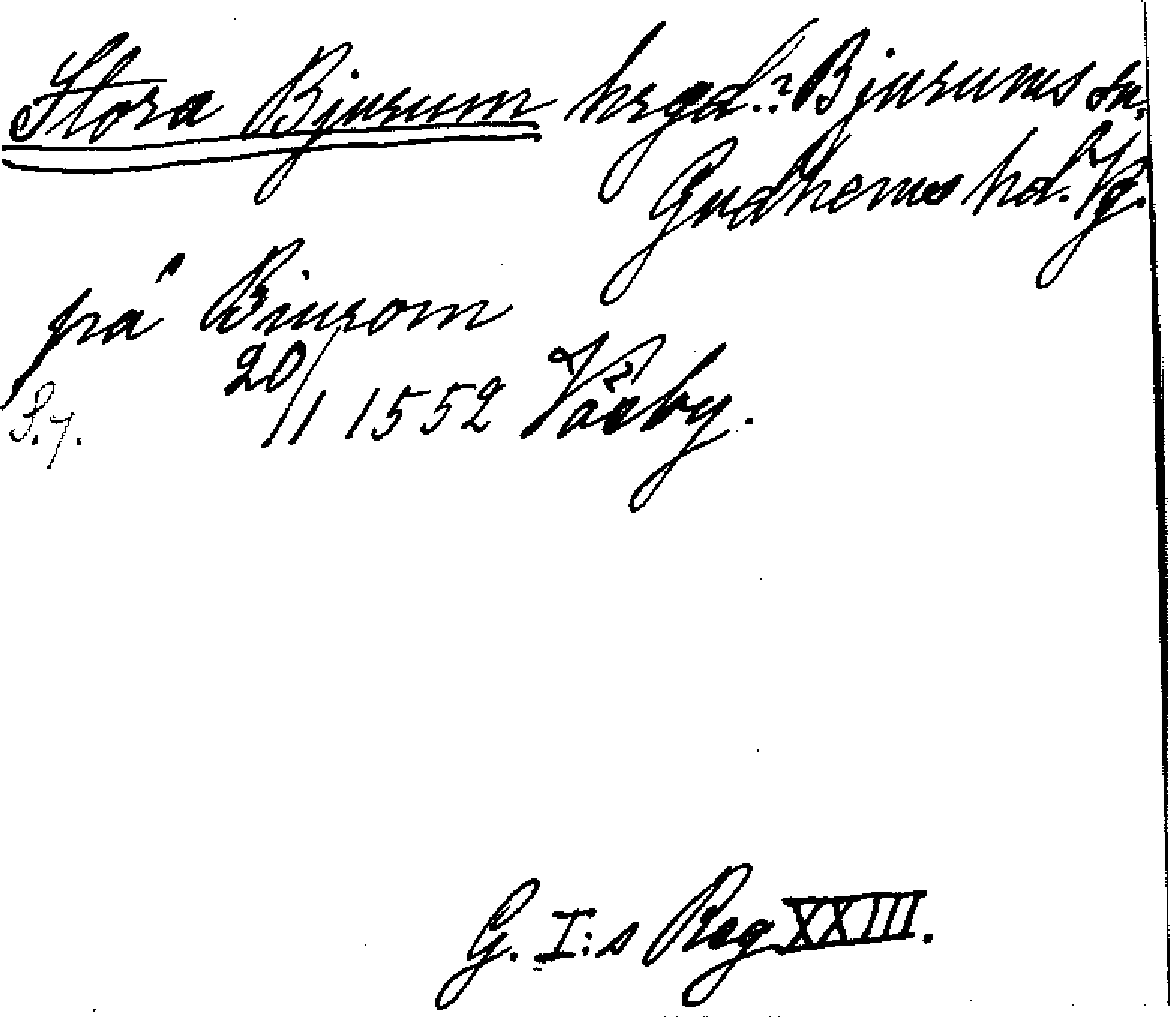 Stora Bjurum hrgd.? Bjurums sn.
Gudhems hd. Vg.
på Biurom
20/11 1552 Väsby.
S. 7.
G. I:s Reg XXIII.